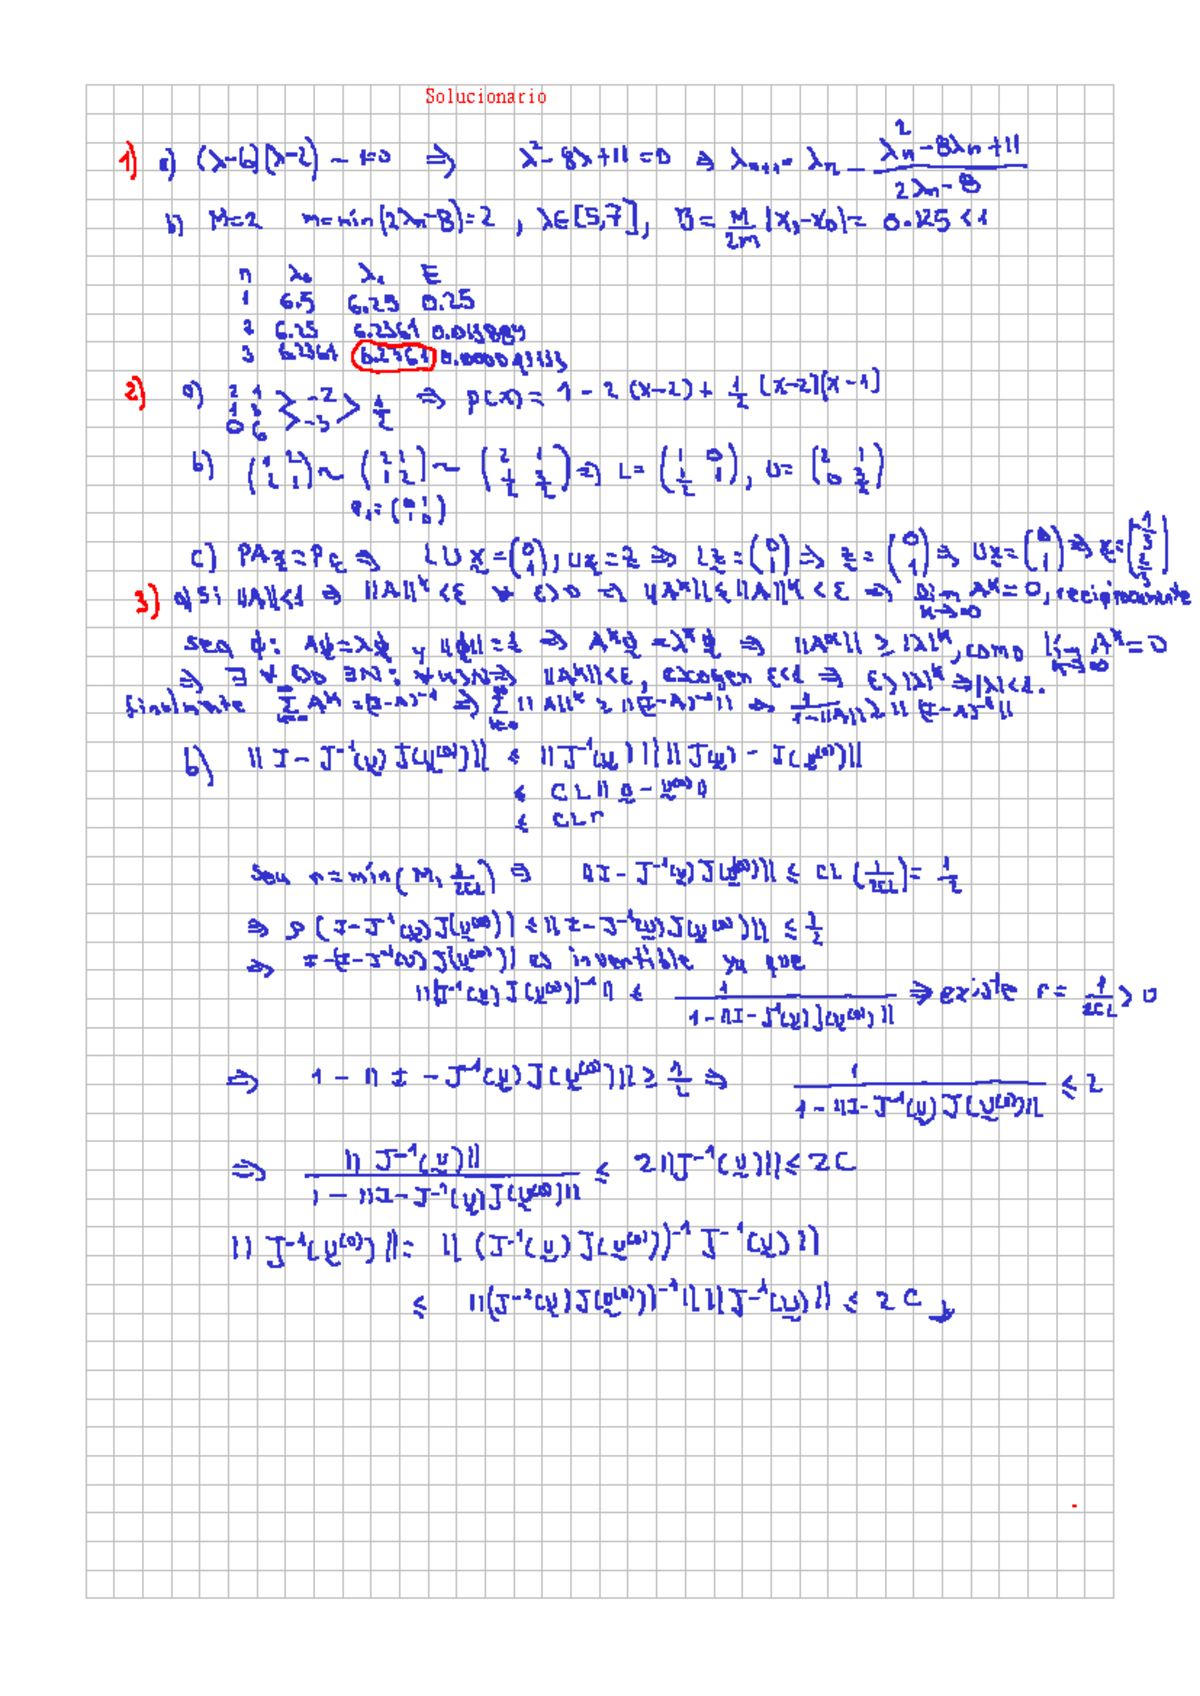 Solucionario
1) a) (λ-6)(λ-2) - 1=0 ⇒ λ²-8λ+11=0 ⇒ λn+1 = λn - (λn²-8λn+11)/(2λn-8)
b) M=2 m=min(2λn-8)=2 , λ∈[5,7], B= M/2m |x1-x0|= 0.125<1
n λ0 λ1 E
1 6.5 6.25 0.25
2 6.25 6.2361 0.013889
3 6.2361 6.2361
2) a) 2 1
1 3 > -2 > 1/2 ⇒ p(x)= 1-2(x-2)+ 1/2 (x-2)(x-1)
0 6 > -3
b) (1 2; 2 1) ~ (2 1; 1 2) ~ (2 1; 1/2 3/2) ⇒ L= (1 0; 1/2 1), U= (2 1; 0 3/2)
P1=(0 1; 1 0)
c) PAx=Pc ⇒ LUx=(0; 1), Ux=z ⇒ Lz=(0; 1) ⇒ z=(0; 1) ⇒ Ux=(0; 1) ⇒ x=
3) a) Si ||A||<1 ⇒ ||A||^k <ε ∀ ε>0 ⇒ ||A^k||≤||A||^k<ε ⇒ lim A^k=0, reciprocamente
Sea φ: Aφ=λφ y ||φ||=1 ⇒ A^kφ=λ^kφ ⇒ ||A^k|| ≥ |λ|^k, como lim A^k=0
⇒ ∃N: ∀k>N ⇒ ||A^k||<ε, escogen ε<1 ⇒ ε>|λ|^k ⇒ |λ|<1.
finalmente Σ A^k=(I-A)^-1 ⇒ Σ ||A||^k ≥ ||(I-A)^-1|| ⇒ 1/(1-||A||) ≥ ||(I-A)^-1||
b) ||I-J^-1(v)J(v^(0))|| ≤ ||J^-1(v)|| ||J(v)-J(v^(0))||
≤ CL||v-v^(0)||
≤ CLr
Sea r=min(M, 1/2CL) ⇒ ||I-J^-1(v)J(v^(0))|| ≤ CL(1/2CL)= 1/2
⇒ ρ(I-J^-1(v)J(v^(0))) ≤ ||I-J^-1(v)J(v^(0))|| ≤ 1/2
⇒ I-(I-J^-1(v)J(v^(0))) es invertible ya que
||(J^-1(v)J(v^(0)))^-1|| ≤ 1/(1-||I-J^-1(v)J(v^(0))||) ⇒ existe r= 1/2CL >0
⇒ 1-||I-J^-1(v)J(v^(0))|| ≥ 1/2 ⇒ 1/(1-||I-J^-1(v)J(v^(0))||) ≤ 2
⇒ ||J^-1(v)||/(1-||I-J^-1(v)J(v^(0))||) ≤ 2||J^-1(v)|| ≤ 2C
||J^-1(v^(0))|| = ||(J^-1(v)J(v^(0)))^-1 J^-1(v)||
≤ ||(J^-1(v)J(v^(0)))^-1|| ||J^-1(v)|| ≤ 2C